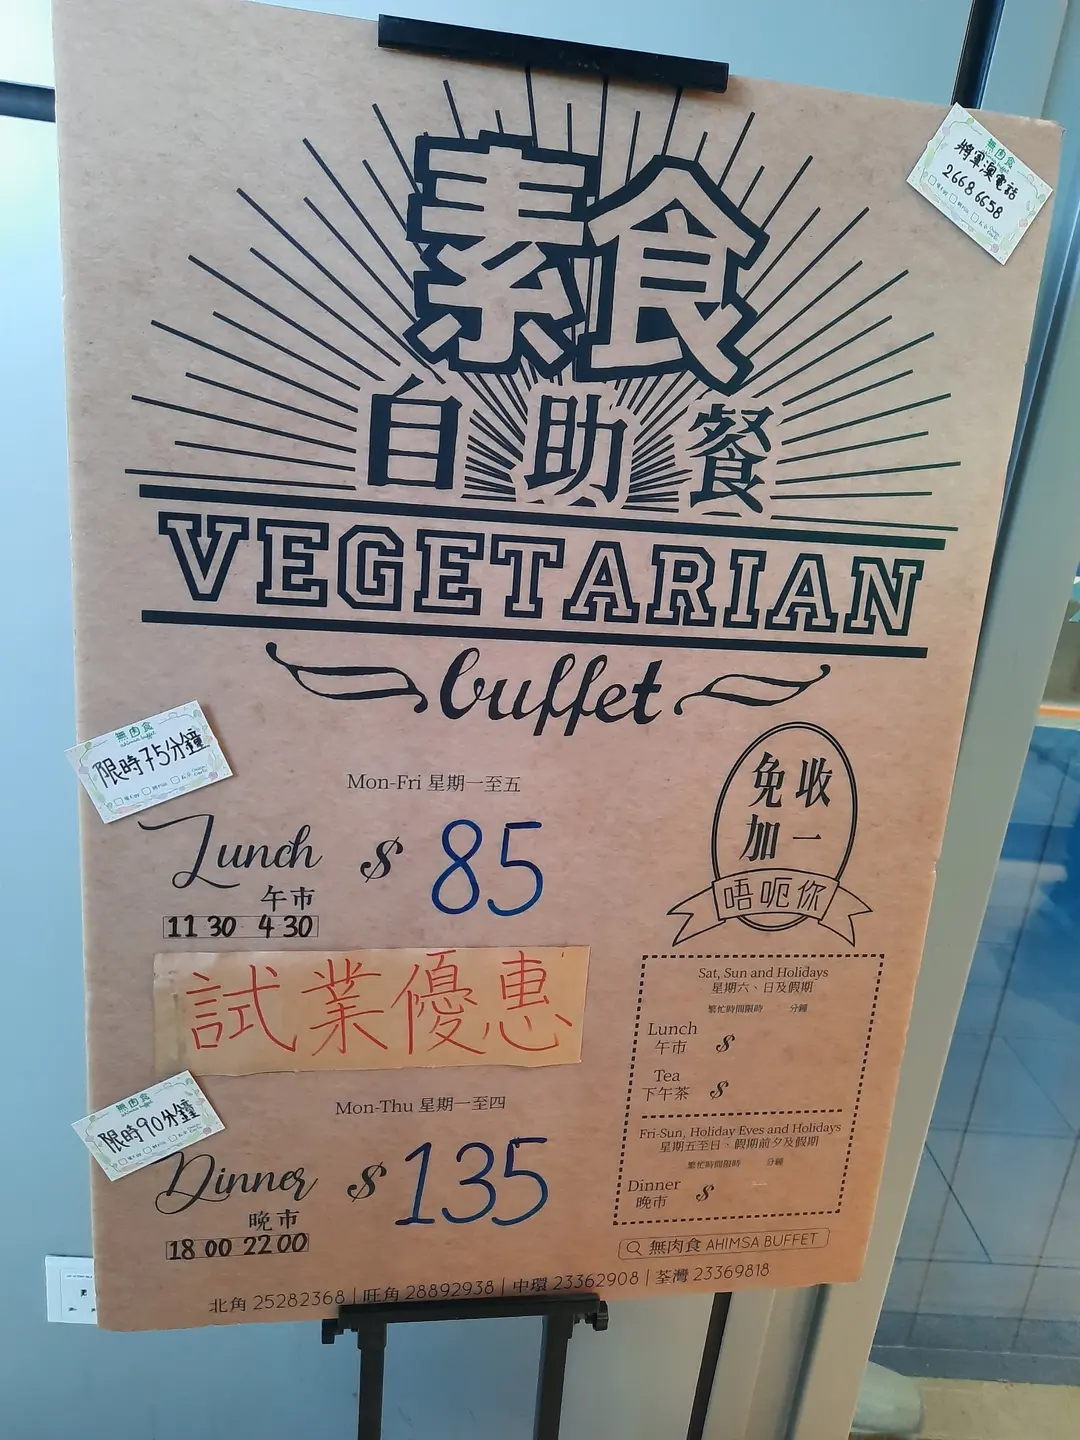 無肉食
將軍澳電話
26686658
素食
自助餐
VEGETARIAN
buffet
無肉食
ahimsa buffet
限時75分鐘
Mon-Fri 星期一至五
Lunch $ 85
午市
11 30 4 30
免收
加一
唔呃你
試業優惠
Sat, Sun and Holidays
星期六、日及假期
繁忙時間限時 分鐘
Lunch
午市 $
Tea
下午茶 $
無肉食
ahimsa buffet
限時90分鐘
Mon-Thu 星期一至四
Dinner $ 135
晚市
18 00 22 00
Fri-Sun, Holiday Eves and Holidays
星期五至日、假期前夕及假期
繁忙時間限時 分鐘
Dinner
晚市 $
無肉食 AHIMSA BUFFET
北角 25282368 | 旺角 28892938 | 中環 23362908 | 荃灣 23369818